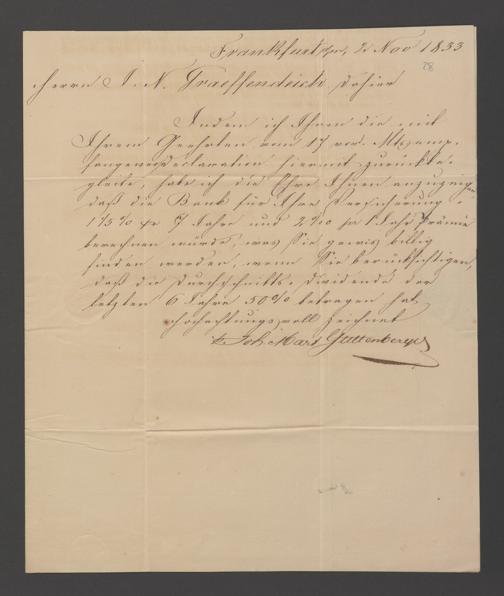 Frankfurt a/m, 2 Nov 1833
28
Herrn J. N. Graeffendeich dahier
Indem ich Ihnen die mit
Ihrem Geehrten vom 17 vor. Mts emp-
fangene Declaration hiermit zurückbe-
gleite, habe ich die Ehre Ihnen anzuzeigen
daß die Bank für Ihre Versicherung
1 15% pr 7 Jahre und 2% pr 1 Jahr Prämie
berechnen würde, was Sie gewis billig
finden werden, wenn Sie berücksichtigen,
daß die Durchschnitts-Dividende der
letzten 6 Jahre 50% betragen hat.
Hochachtungsvoll zeichnet
Joh Mart Guttenberger